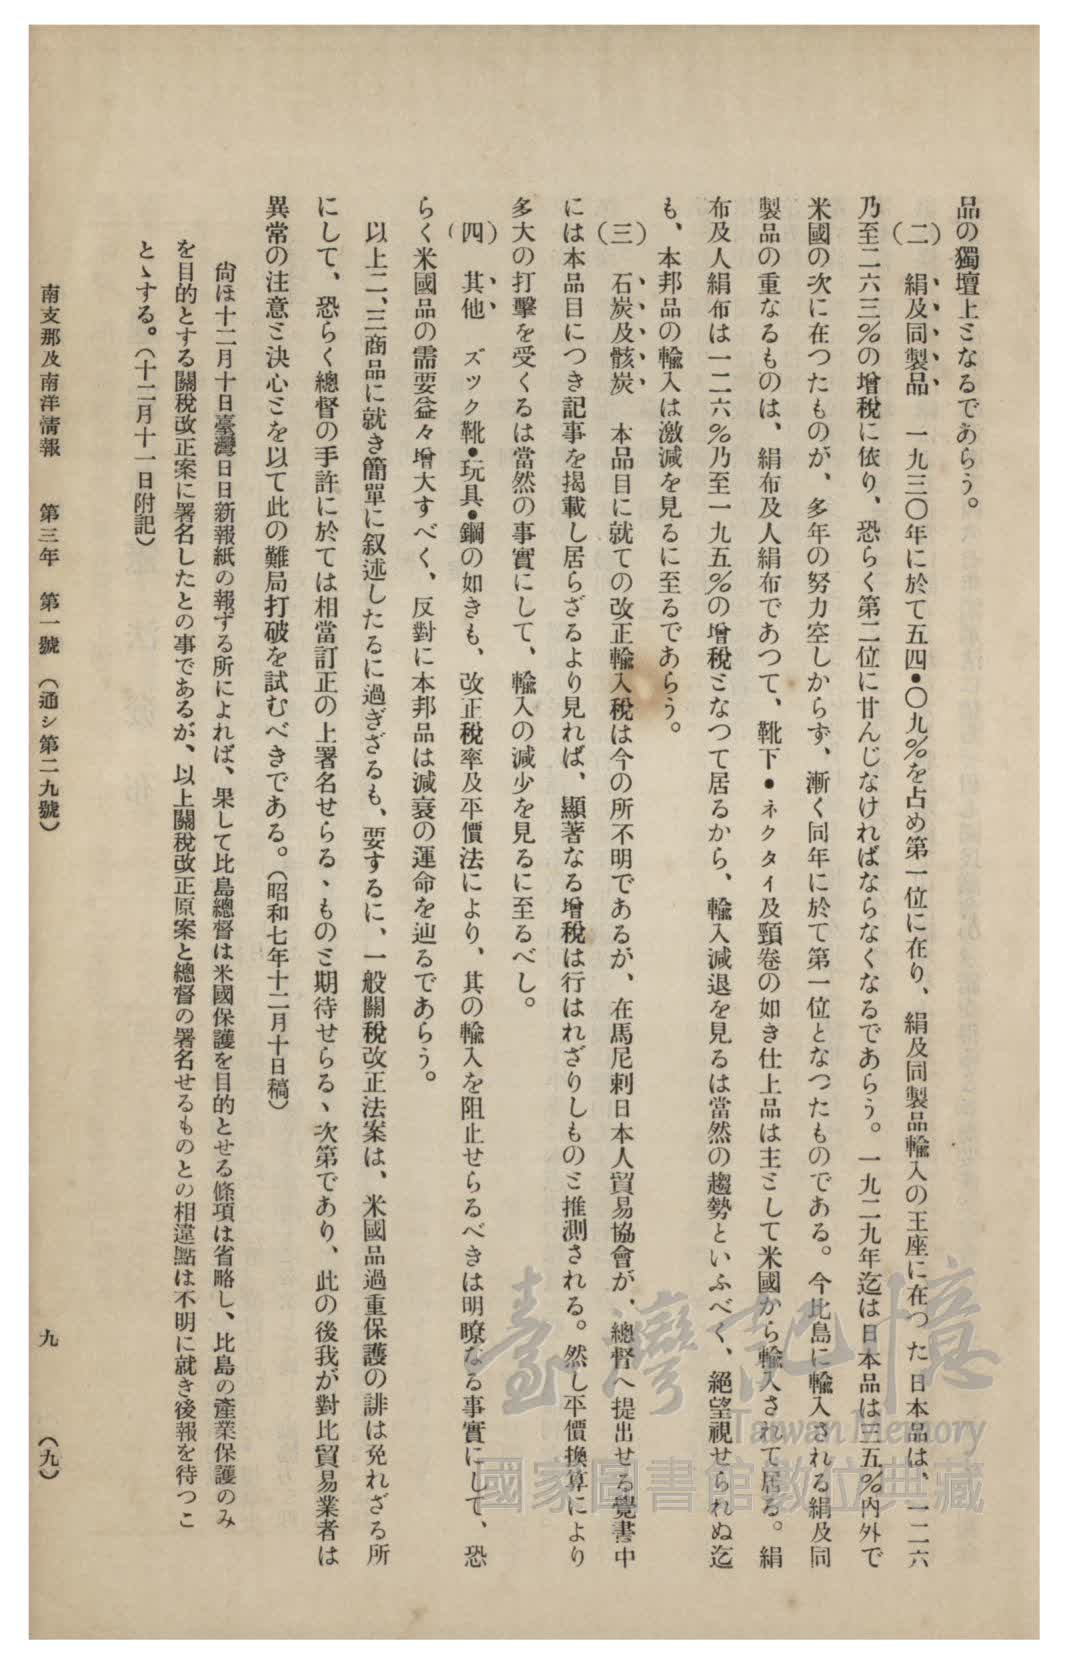 品の獨壇上ミなるであらう。
(二) 絹及同製品 一九三〇年に於て五四•〇九%を占め第一位に在り、絹及同製品輸入の王座に在つた日本品は、一二六
乃至二六三%の增税に依り、恐らく第二位に甘んじなければならなくなるであらう。一九二九年迄は日本品は三五%内外で
米國の次に在つたものが、多年の努力空しからず、漸く同年に於て第一位となつたものである。今比島に輸入される絹及同
製品の重なるものは、絹布及人絹布であつて、靴下•ネクタイ及頸卷の如き仕上品は主ミして米國から輸入されて居る。絹
布及人絹布は一二六%乃至一九五%の增税ミなつて居るから、輸入減退を見るは當然の趨勢といふべく、絕望視せられぬ迄
も、本邦品の輸入は激減を見るに至るであらう。
(三) 石炭及骸炭 本品目に就ての改正輸入税は今の所不明であるが、在馬尼剌日本人貿易協會が、總督へ提出せる覺書中
には本品目につき記事を揭載し居らざるより見れば、顯著なる增税は行はれざりしものミ推測される。然し平價換算により
多大の打擊を受くるは當然の事實にして、輸入の減少を見るに至るべし。
(四) 其他 ズック靴•玩具•鋼の如きも、改正税率及平價法により、其の輸入を阻止せらるべきは明瞭なる事實にして、恐
らく米國品の需要益々增大すべく、反對に本邦品は減衰の運命を辿るであらう。
以上二、三商品に就き簡單に叙述したるに過ぎざるも、要するに、一般關税改正法案は、米國品過重保護の誹は免れざる所
にして、恐らく總督の手許に於ては相當訂正の上署名せらるゝものミ期待せらるゝ次第であり、此の後我が對比貿易業者は
異常の注意ミ決心ミを以て此の難局打破を試むべきである。(昭和七年十二月十日稿)
尙ほ十二月十日臺灣日日新報紙の報ずる所によれば、果して比島總督は米國保護を目的とせる條項は省略し、比島の產業保護のみ
を目的とする關税改正案に署名したとの事であるが、以上關税改正原案と總督の署名せるものとの相違點は不明に就き後報を待つこ
とゝする。(十二月十一日附記)
南支那及南洋情報 第三年 第一號 (通シ第二九號) 九 (九)
臺灣記憶
Taiwan Memory
國家圖書館數位典藏